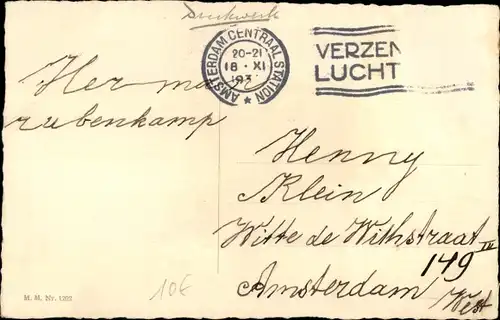 Drukwerk
AMSTERDAM CENTRAAL STATION
20-21
18 · XI
193
VERZEN
LUCHT
Herman
rubenkamp
Henny
Klein
Witte de Withstraat
149 III
Amsterdam
West
M. M. Nr. 1202
10€